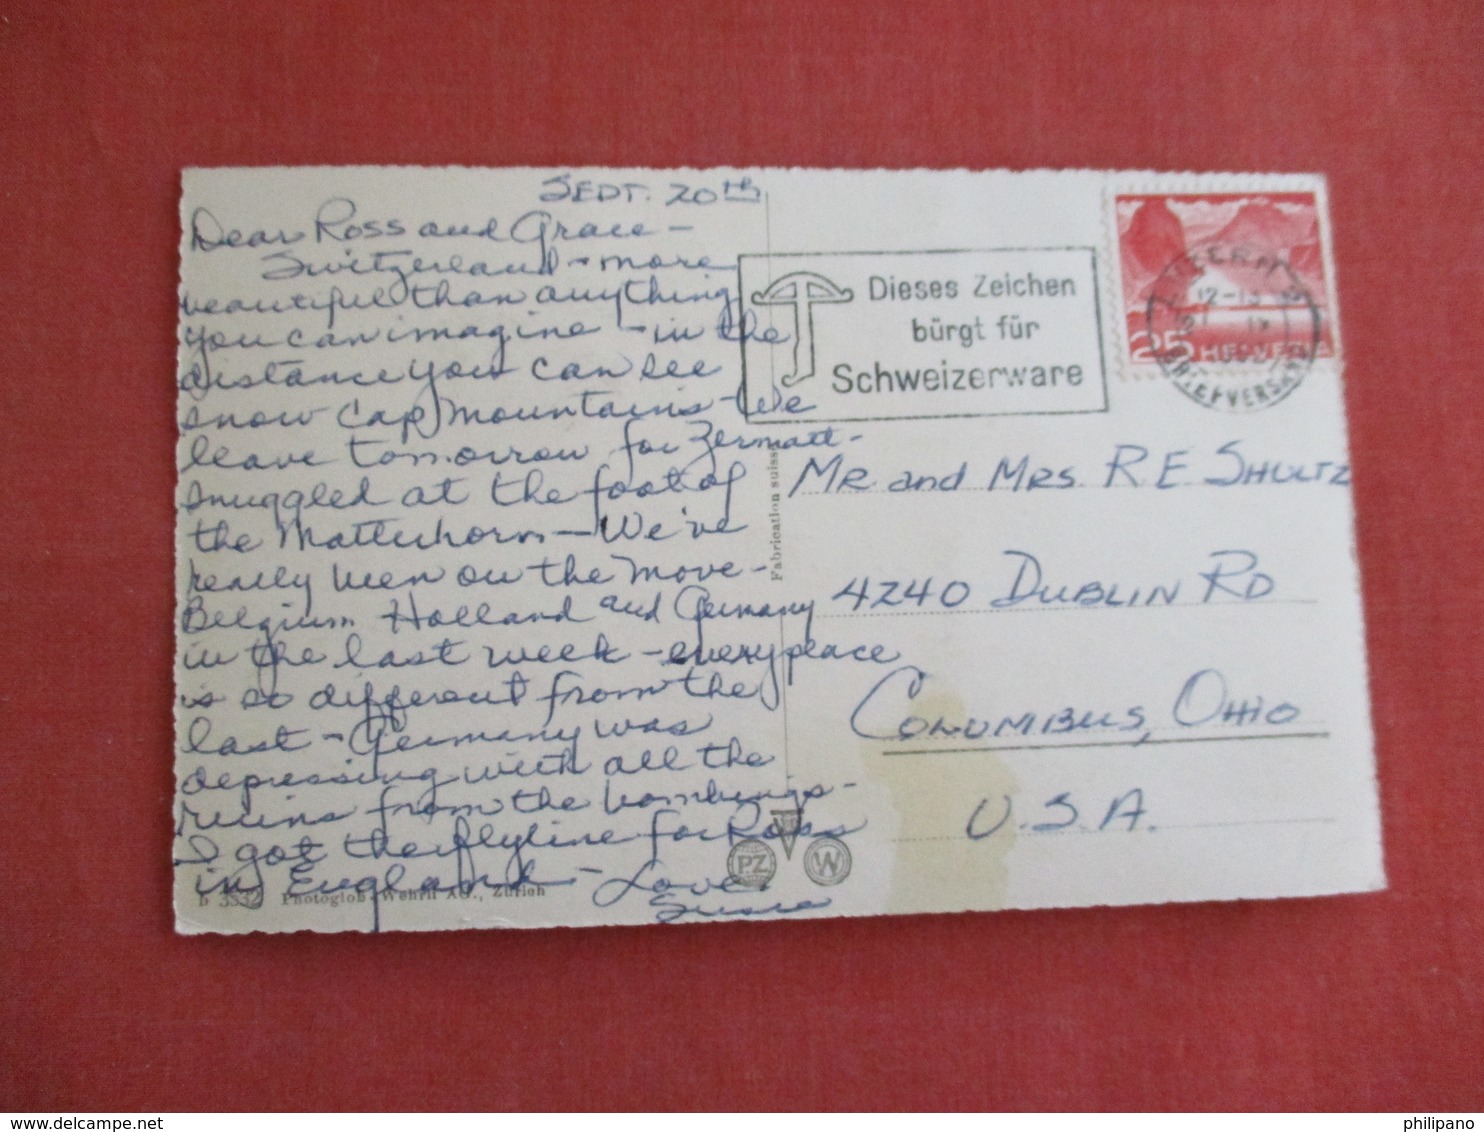 SEPT. 20th
Dear Ross and Grace —
Switzerland - more
beautiful than anything
you can imagine - in the
distance you can see
snow cap mountains - We
leave tomorrow for Zermatt -
snuggled at the foot of
the Matterhorn — We've
really been on the move -
Belgium Holland and Germany
in the last week - every place
is so different from the
last - Germany was
depressing with all the
ruins from the bombings -
I got the flyline for Ross
in England - Love
Dieses Zeichen
bürgt für
Schweizerware
LUZERN 2
12-13
IX
BRIEFVERSAND
25 HELVETIA
Fabrication suisse
MR and MRS. R E SHULTZ
4240 DUBLIN RD
COLUMBUS, OHIO
U.S.A.
PZ
W
b 3532 Photoglob-Wehrli AG., Zürich
delcampe.net
philipano